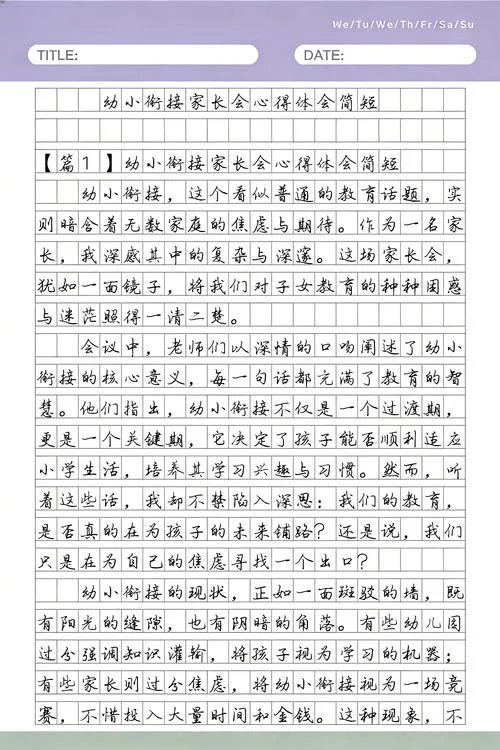 We/Tu/We/Th/Fr/Sa/Su
TITLE:
DATE:
幼小衔接家长会心得体会简短
【篇1】幼小衔接家长会心得体会简短
幼小衔接，这个看似普通的教育话题，实
则暗含着无数家庭的焦虑与期待。作为一名家
长，我深感其中的复杂与深邃。这场家长会，
犹如一面镜子，将我们对子女教育的种种困惑
与迷茫照得一清二楚。
会议中，老师们以深情的口吻阐述了幼小
衔接的核心意义，每一句话都充满了教育的智
慧。他们指出，幼小衔接不仅是一个过渡期，
更是一个关键期，它决定了孩子能否顺利适应
小学生活，培养其学习兴趣与习惯。然而，听
着这些话，我却不禁陷入深思：我们的教育，
是否真的在为孩子的未来铺路？还是说，我们
只是在为自己的焦虑寻找一个出口？
幼小衔接的现状，正如一面斑驳的墙，既
有阳光的缝隙，也有阴暗的角落。有些幼儿园
过分强调知识灌输，将孩子视为学习的机器；
有些家长则过分焦虑，将幼小衔接视为一场竞
赛，不惜投入大量时间和金钱。这种现象，不